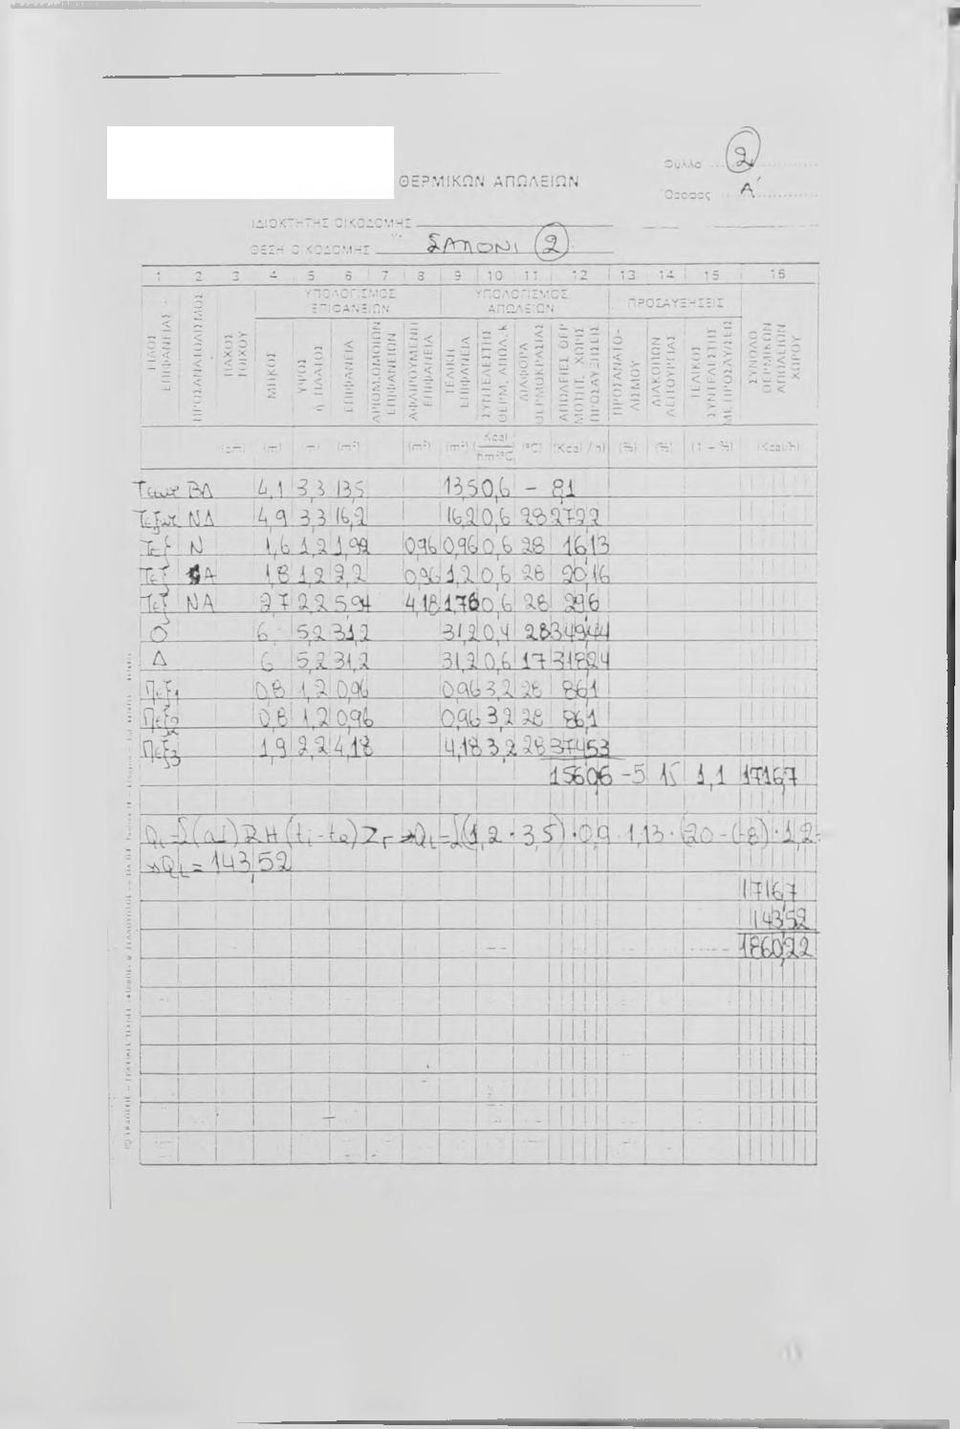 Φύλλο ... 2
ΘΕΡΜΙΚΩΝ ΑΠΩΛΕΙΩΝ
Όροφος ... Α'
ΙΔΙΟΚΤΗΤΗΣ ΟΙΚΟΔΟΜΗΣ
ΘΕΣΗ ΟΙΚΟΔΟΜΗΣ ΣΑΛΟΝΙ 2
1 2 3 4 5 6 7 8 9 10 11 12 13 14 15 16
ΥΠΟΛΟΓΙΣΜΟΣ ΕΠΙΦΑΝΕΙΩΝ ΥΠΟΛΟΓΙΣΜΟΣ ΑΠΩΛΕΙΩΝ ΠΡΟΣΑΥΞΗΣΕΙΣ
ΕΙΔΟΣ ΕΠΙΦΑΝΕΙΑΣ ΠΡΟΣΑΝΑΤΟΛΙΣΜΟΣ ΠΑΧΟΣ ΤΟΙΧΟΥ ΜΗΚΟΣ ΥΨΟΣ ή ΠΛΑΤΟΣ ΕΠΙΦΑΝΕΙΑ ΑΡΙΘΜ.ΟΜΟΙΩΝ ΕΠΙΦΑΝΕΙΩΝ ΑΦΑΙΡΟΥΜΕΝΗ ΕΠΙΦΑΝΕΙΑ ΤΕΛΙΚΗ ΕΠΙΦΑΝΕΙΑ ΣΥΝΤΕΛΕΣΤΗΣ ΘΕΡΜ. ΑΠΩΛ. k ΔΙΑΦΟΡΑ ΘΕΡΜΟΚΡΑΣΙΑΣ ΑΠΩΛΕΙΕΣ ΘΕΡΜΟΤΗΤ. ΧΩΡΙΣ ΠΡΟΣΑΥΞΗΣΕΙΣ ΠΡΟΣΑΝΑΤΟΛΙΣΜΟΥ ΔΙΑΚΟΠΩΝ ΛΕΙΤΟΥΡΓΙΑΣ ΤΕΛΙΚΟΣ ΣΥΝΤΕΛΕΣΤΗΣ ΜΕ ΠΡΟΣΑΥ/ΣΕΙΣ ΣΥΝΟΛΟ ΘΕΡΜΙΚΩΝ ΑΠΩΛΕΙΩΝ ΧΩΡΟΥ
(cm) (m) (m) (m²) (m²) (m²) (Kcal/hm²°C) (°C) (Kcal/h) (%) (%) (1 - %) (Kcal/h)
ΒΔ 4,1 3,3 13,5 13,5 0,6 - 81
Τεξωτ ΝΔ 4,9 3,3 16,2 16,2 0,6 28 272,2
Τεξ Ν 1,6 1,2 1,92 0,96 0,96 0,6 28 16,13
Τεξ Α 1,8 1,2 2,2 0,96 1,2 0,6 28 20,16
Τεξ ΝΑ 2,7 2,2 5,94 4,18 1,76 0,6 28 29,6
Ο 6 5,2 31,2 31,2 0,4 28 349,44
Δ 6 5,2 31,2 31,2 0,6 17 318,24
Πεξ1 0,8 1,2 0,96 0,96 3,2 28 86,1
Πεξ2 0,8 1,2 0,96 0,96 3,2 28 86,1
Πεξ3 1,9 2,2 4,18 4,18 3,2 28 374,53
1560,6 -5 15 1,1 1716,7
QL=Σ(αl)RH(ti-ta)Zr⇒QL=Σ(1,2·3,5)·0,9·1,13·(20-(-8)·1,2=
⇒QL=143,52
1716,7
143,52
1860,22